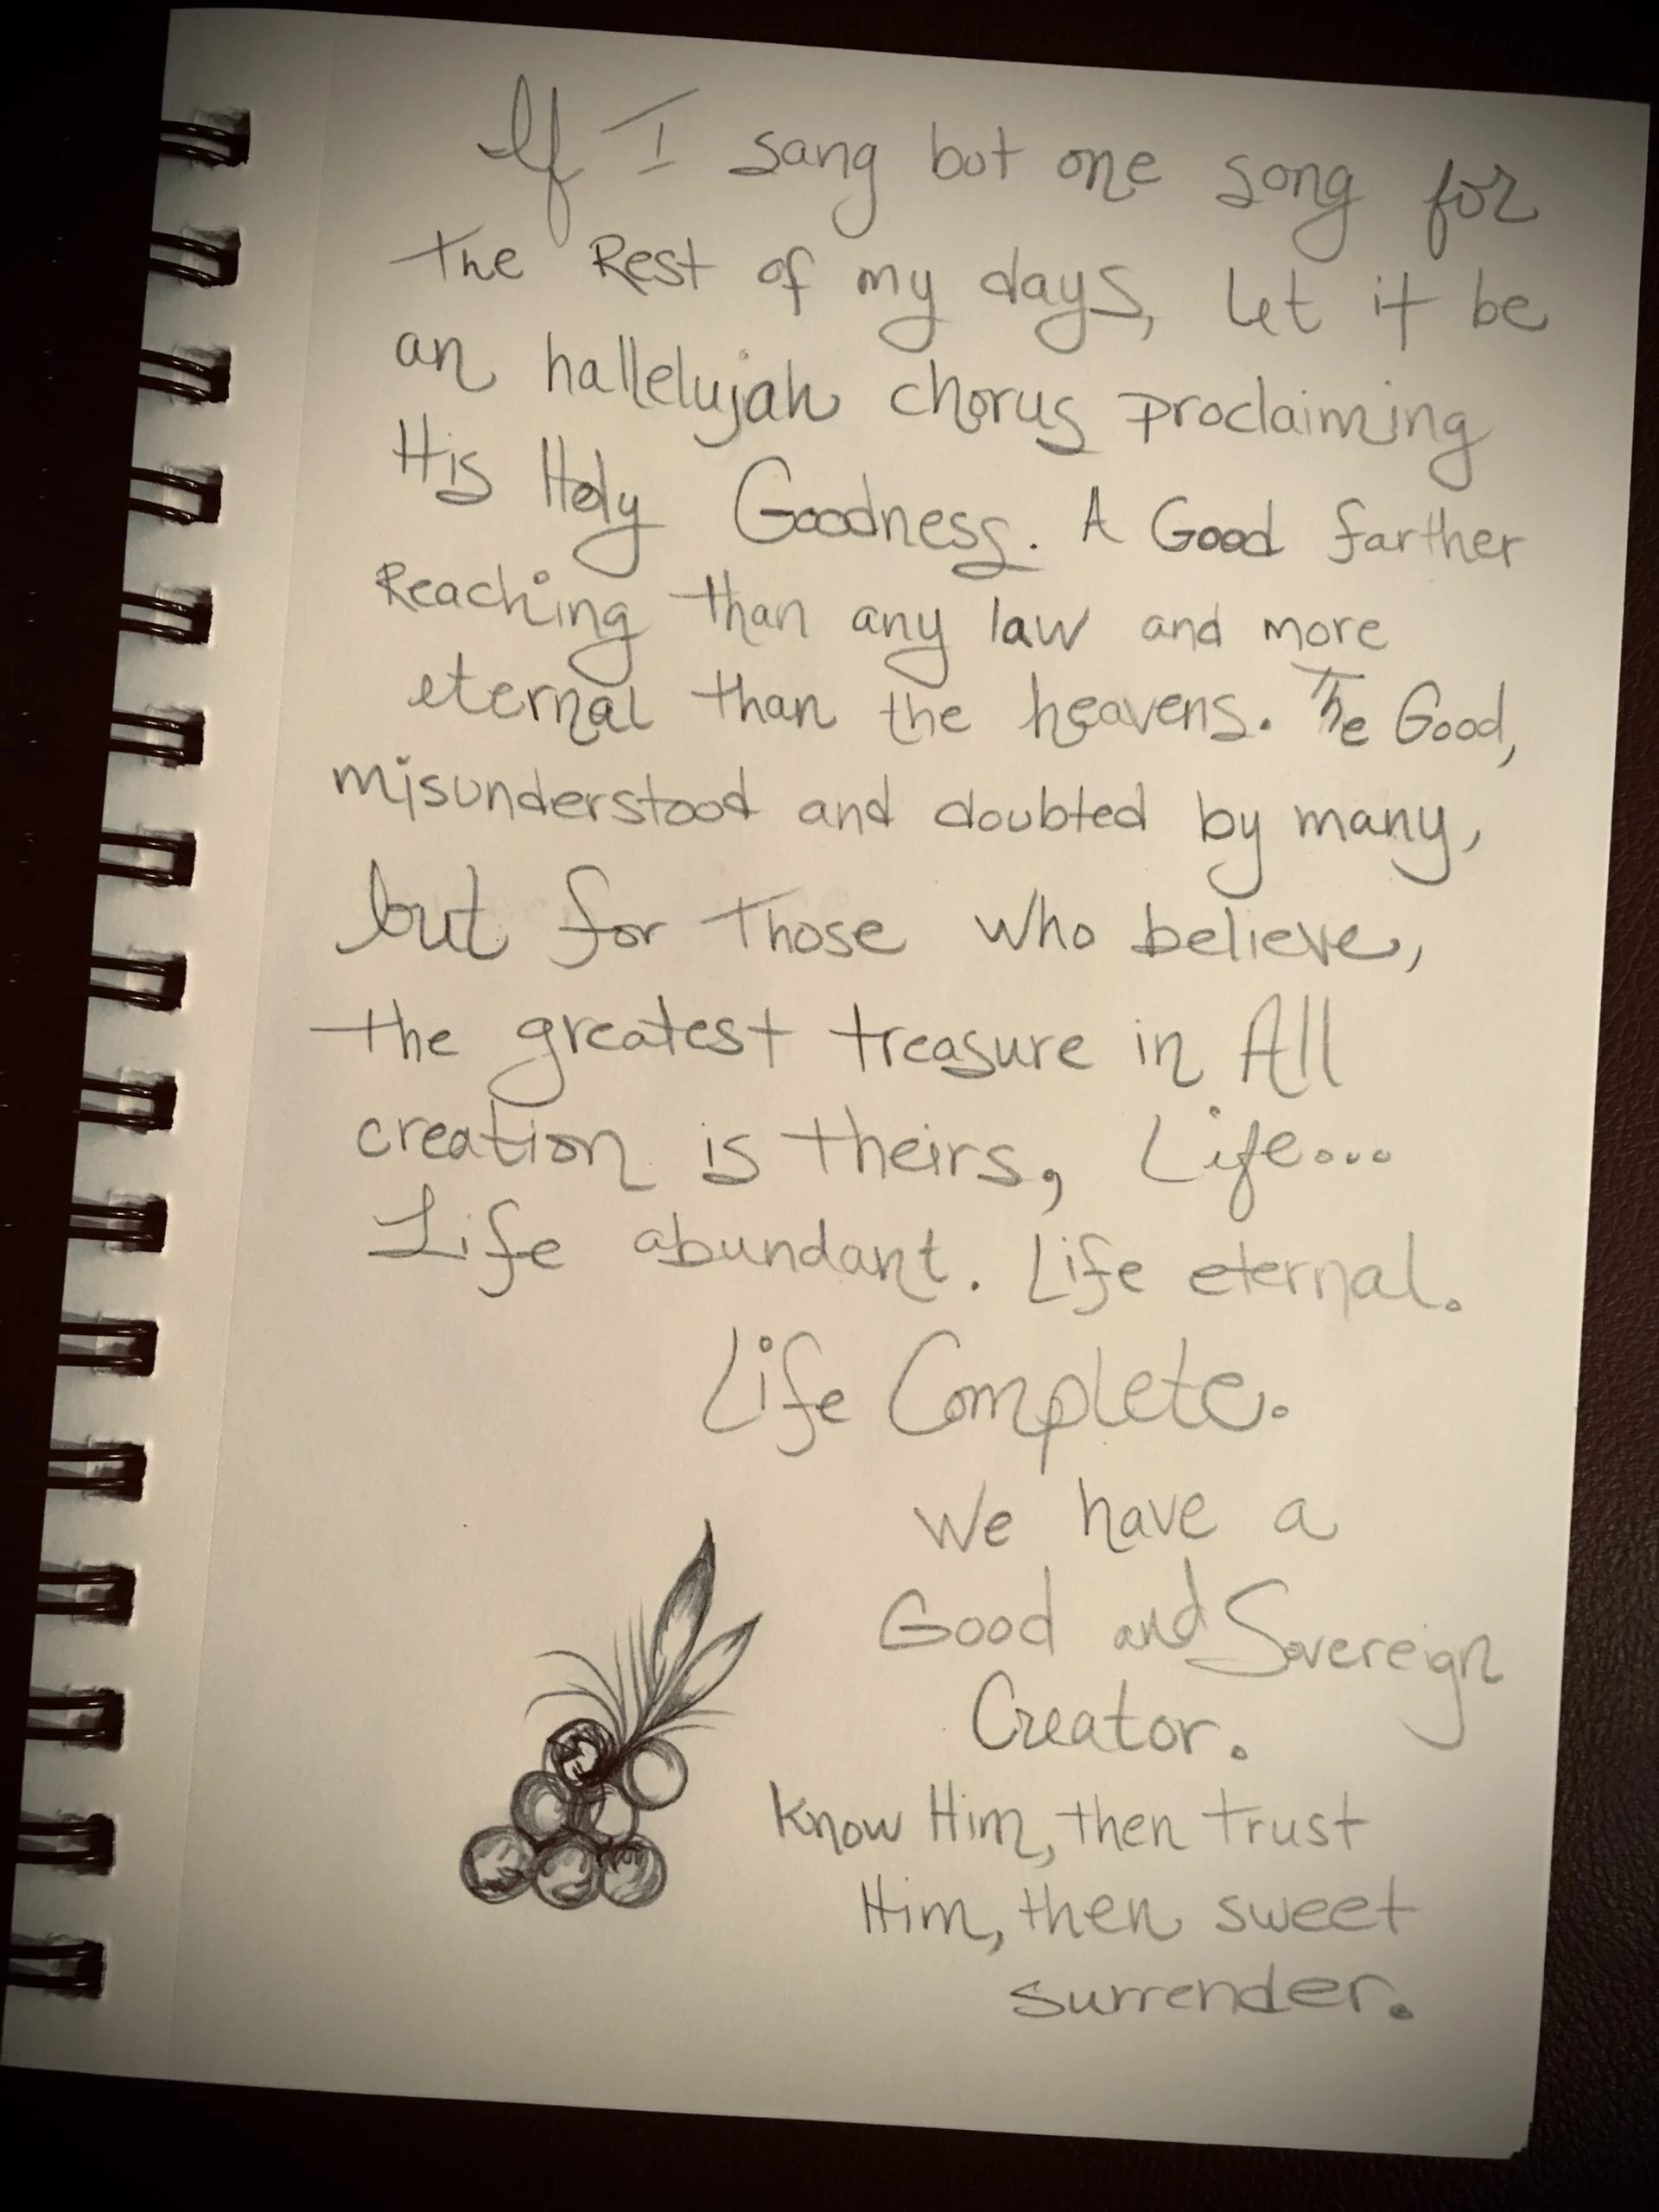 If I sang but one song for
The Rest of my days, let it be
an hallelujah chorus proclaiming
His Holy Goodness. A Good farther
Reaching than any law and more
eternal than the heavens. The Good,
misunderstood and doubted by many,
but for Those who believe,
the greatest treasure in All
creation is theirs, Life...
Life abundant. Life eternal.
Life Complete.
We have a
Good and Sovereign
Creator.
Know Him, then trust
Him, then sweet
surrender.